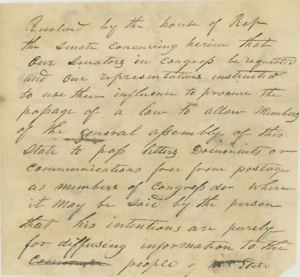 Resolved by the house of Rep
the Senate concurring herein that
our Senators in congress be requested
and our representatives instructed
to use them influence to procure the
passage of a law to allow Members
of the general assembly of this
State to pass letters Documents or
communications free from postage
as members of congress do where
it may be said by the person
that his intentions are purely
for diffusing information to the
people of State